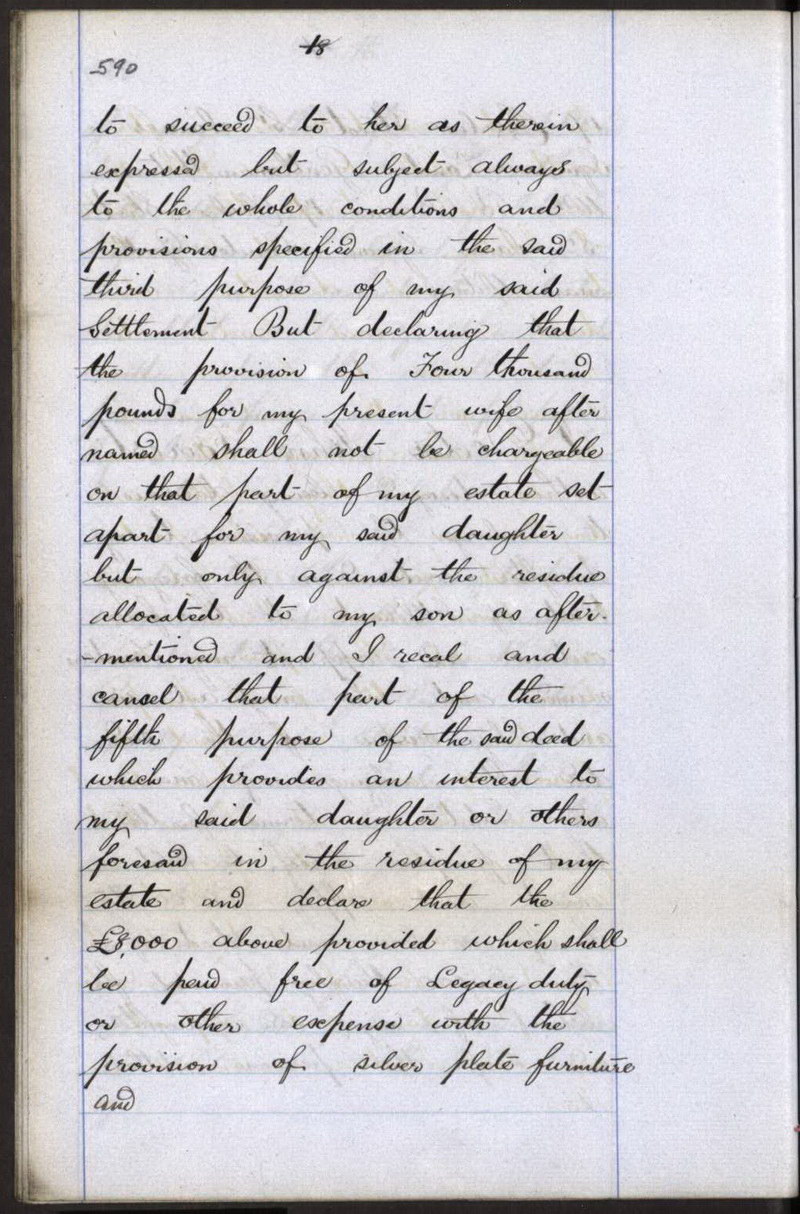 18
590
to succeed to her as therein
expressed but subject always
to the whole conditions and
provisions specified in the said
third purpose of my said
Settlement But declaring that
the provision of Four thousand
pounds for my present wife after
named shall not be chargeable
on that part of my estate set
apart for my said daughter
but only against the residue
allocated to my son as after-
-mentioned and I recal and
cancel that part of the
fifth purpose of the said deed
which provides an interest to
my said daughter or others
foresaid in the residue of my
estate and declare that the
£8,000 above provided which shall
be paid free of Legacy duty
or other expense with the
provision of silver plate furniture
and